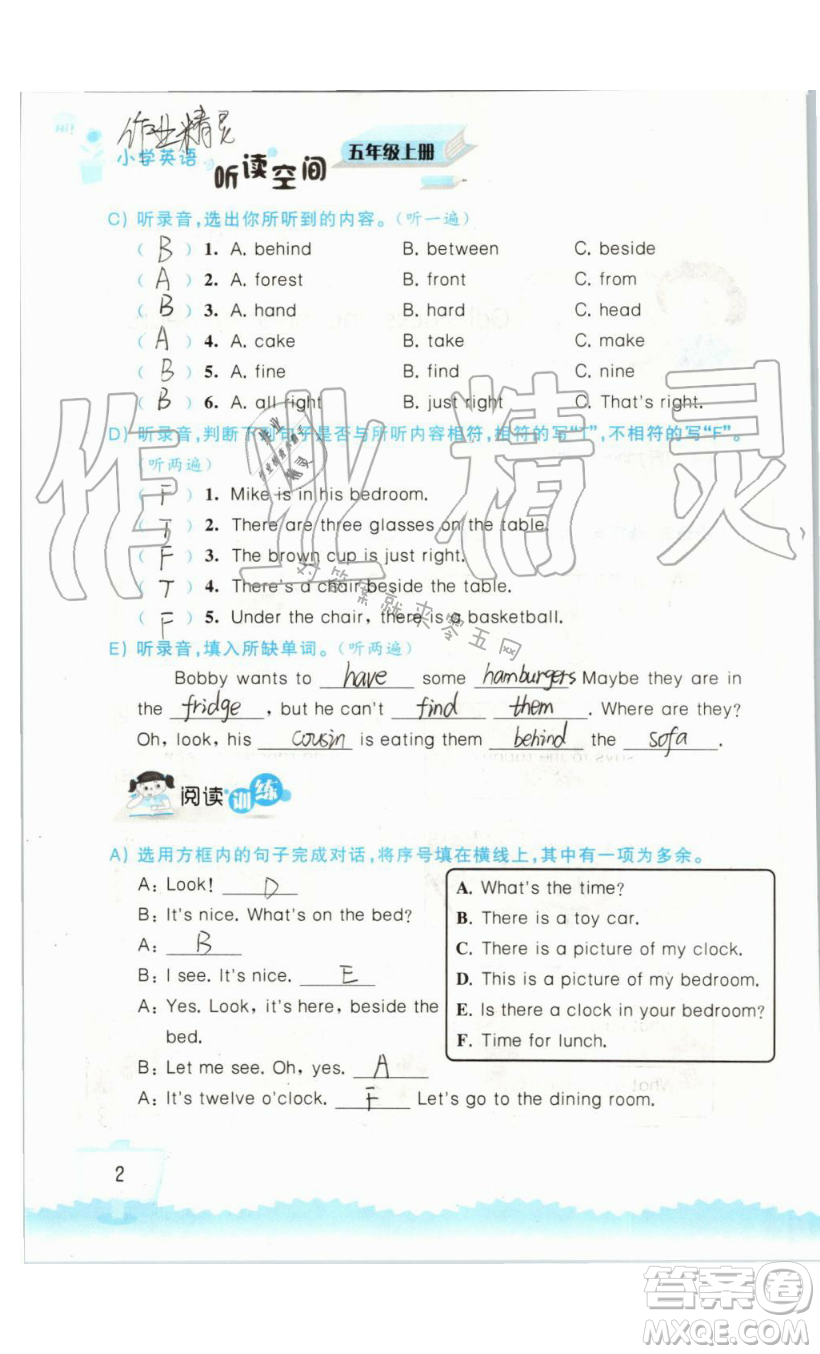 Hi!
作业精灵
小学英语 听读空间 五年级上册
C) 听录音,选出你所听到的内容。(听一遍)
( B ) 1. A. behind B. between C. beside
( A ) 2. A. forest B. front C. from
( B ) 3. A. hand B. hard C. head
( A ) 4. A. cake B. take C. make
( B ) 5. A. fine B. find C. nine
( B ) 6. A. all right B. just right C. That's right.
D) 听录音,判断下列句子是否与所听内容相符,相符的写"T",不相符的写"F"。
(听两遍)
( F ) 1. Mike is in his bedroom.
( T ) 2. There are three glasses on the table.
( F ) 3. The brown cup is just right.
( T ) 4. There's a chair beside the table.
( F ) 5. Under the chair, there is a basketball.
E) 听录音,填入所缺单词。(听两遍)
Bobby wants to have some hamburgers Maybe they are in
the fridge, but he can't find them. Where are they?
Oh, look, his cousin is eating them behind the sofa.
阅读训练
A) 选用方框内的句子完成对话,将序号填在横线上,其中有一项为多余。
A: Look! D
B: It's nice. What's on the bed?
A: B
B: I see. It's nice. E
A: Yes. Look, it's here, beside the
bed.
B: Let me see. Oh, yes. A
A: It's twelve o'clock. F Let's go to the dining room.
A. What's the time?
B. There is a toy car.
C. There is a picture of my clock.
D. This is a picture of my bedroom.
E. Is there a clock in your bedroom?
F. Time for lunch.
2
作业精灵
对答案就来零五网
答案圈
MXQE.COM